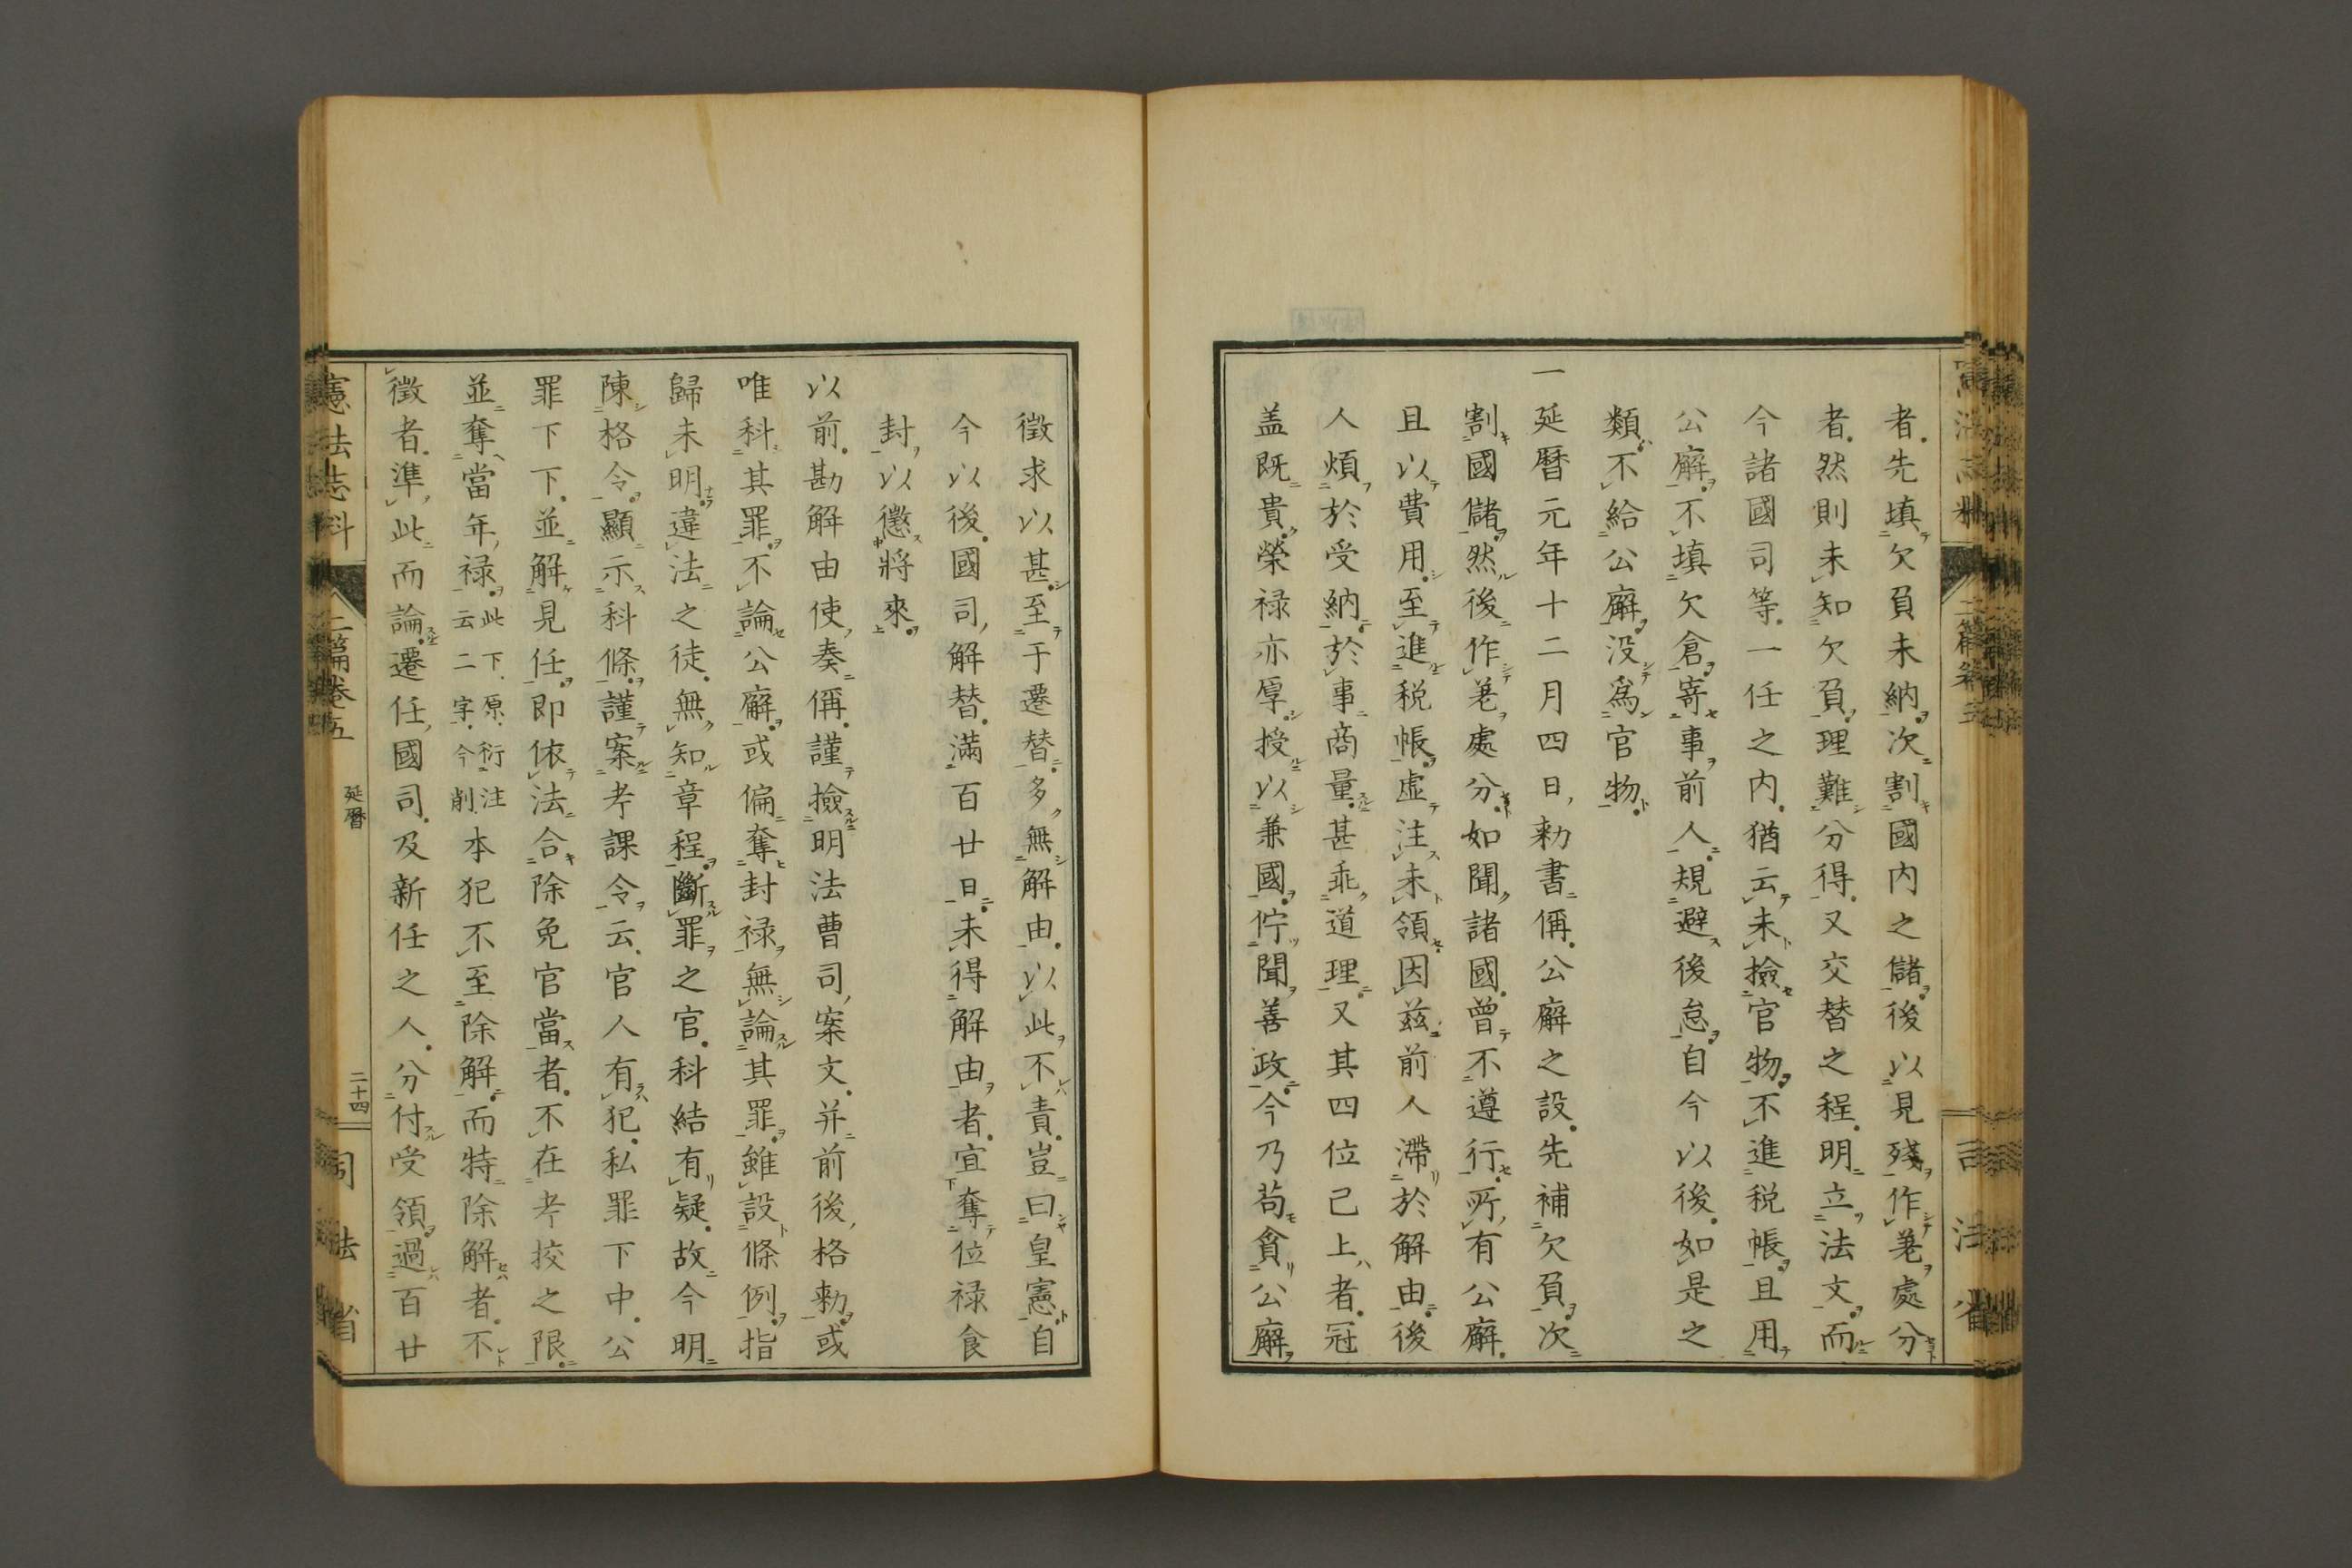 者先填欠負未納次割國内之儲後以見殘作差處分
者然則未知欠負理難分得又交替之程明立法文而
今諸國司等一任之内猶云未撿官物不進税帳且用
公廨不填欠倉寄事前人規避後怠自今以後如是之
類不給公廨没爲官物
一延暦元年十二月四日勅書偁公廨之設先補欠負次
割國儲然後作差處分如聞諸國曾不遵行所有公廨
且以費用至進税帳虚注未領因茲前人滯於解由後
人煩於受納於事商量甚乖道理又其四位已上者冠
盖既貴榮禄亦厚授以兼國佇聞善政今乃苟貪公廨
徴求以甚至于遷替多無解由以此不責豈曰皇憲自
今以後國司解替滿百廿日未得解由者宜奪位禄食
封以懲將來
以前勘解由使奏偁謹撿明法曹司案文并前後格勅或
唯科其罪不論公廨或偏奪封禄無論其罪雖設條例指
歸未明違法之徒無知章程斷罪之官科結有疑故今明
陳格令顯示科條謹案考課令云官人有犯私罪下中公
罪下下並解見任即依法合除免官當者不在考挍之限
並奪當年禄此下原衍注云二字今削本犯不至除解而特除解者不
徴者準此而論遷任國司及新任之人分付受領過百廿
憲法志料 二篇卷五 延暦 二十四 司法省